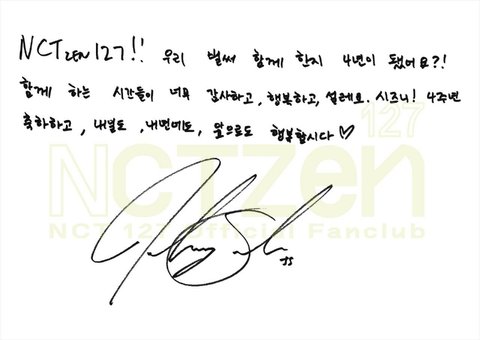 NCTzen 127!! 우리 벌써 함께 한지 4년이 됐어요?!
함께 하는 시간들이 너무 감사하고, 행복하고, 설레요. 시즈니! 4주년
축하하고, 내일도, 내년에도, 앞으로도 행복합시다♡
127
NCTzen
NCT 127 Official Fanclub